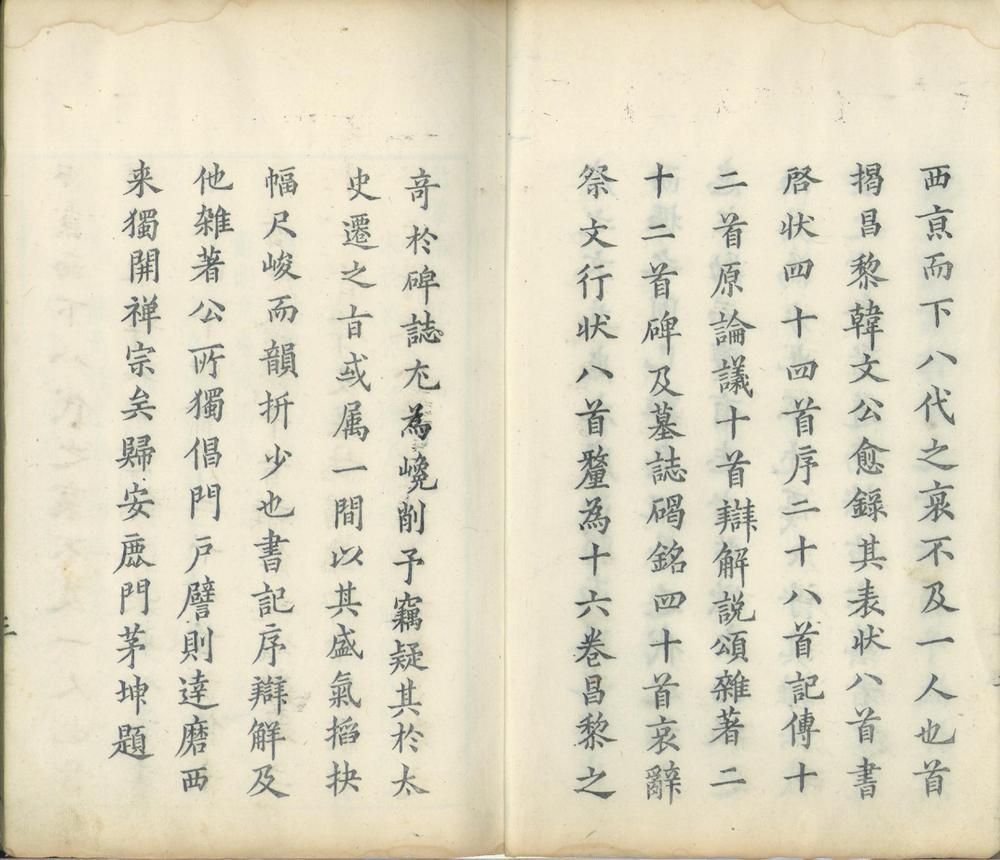 西亰而下八代之衰不及一人也首
揭昌黎韓文公愈錄其表狀八首書
啓狀四十四首序二十八首記傳十
二首原論議十首辯解説頌雜著二
十二首碑及墓誌碣銘四十首哀辭
祭文行狀八首釐為十六卷昌黎之
竒於碑誌尤為巉削予竊疑其於太
史遷之旨或属一間以其盛氣搯抉
幅尺峻而韻折少也書記序辯解及
他雑著公所獨倡門戸譬則達磨西
来獨開禅宗矣歸安鹿門茅坤題
三